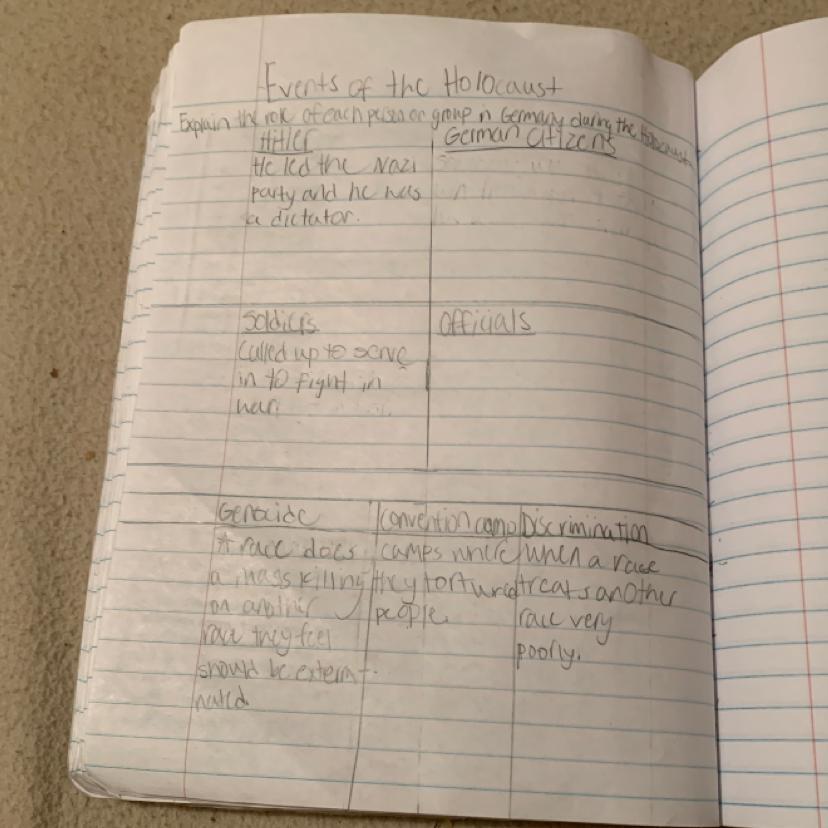 Events of the Holocaust
Explain the role of each person or group in Germany during the Holocaust
Hitler
He led the Nazi
party and he was
a dictator.
German Citizens
Soldiers
Called up to serve
in to fight in
war.
Officials
Genocide
A race does
a mass killing
on another
race they feel
should be extermi-
nated.
Convention camp
camps where
they tortured
people.
Discrimination
when a race
treats another
race very
poorly.